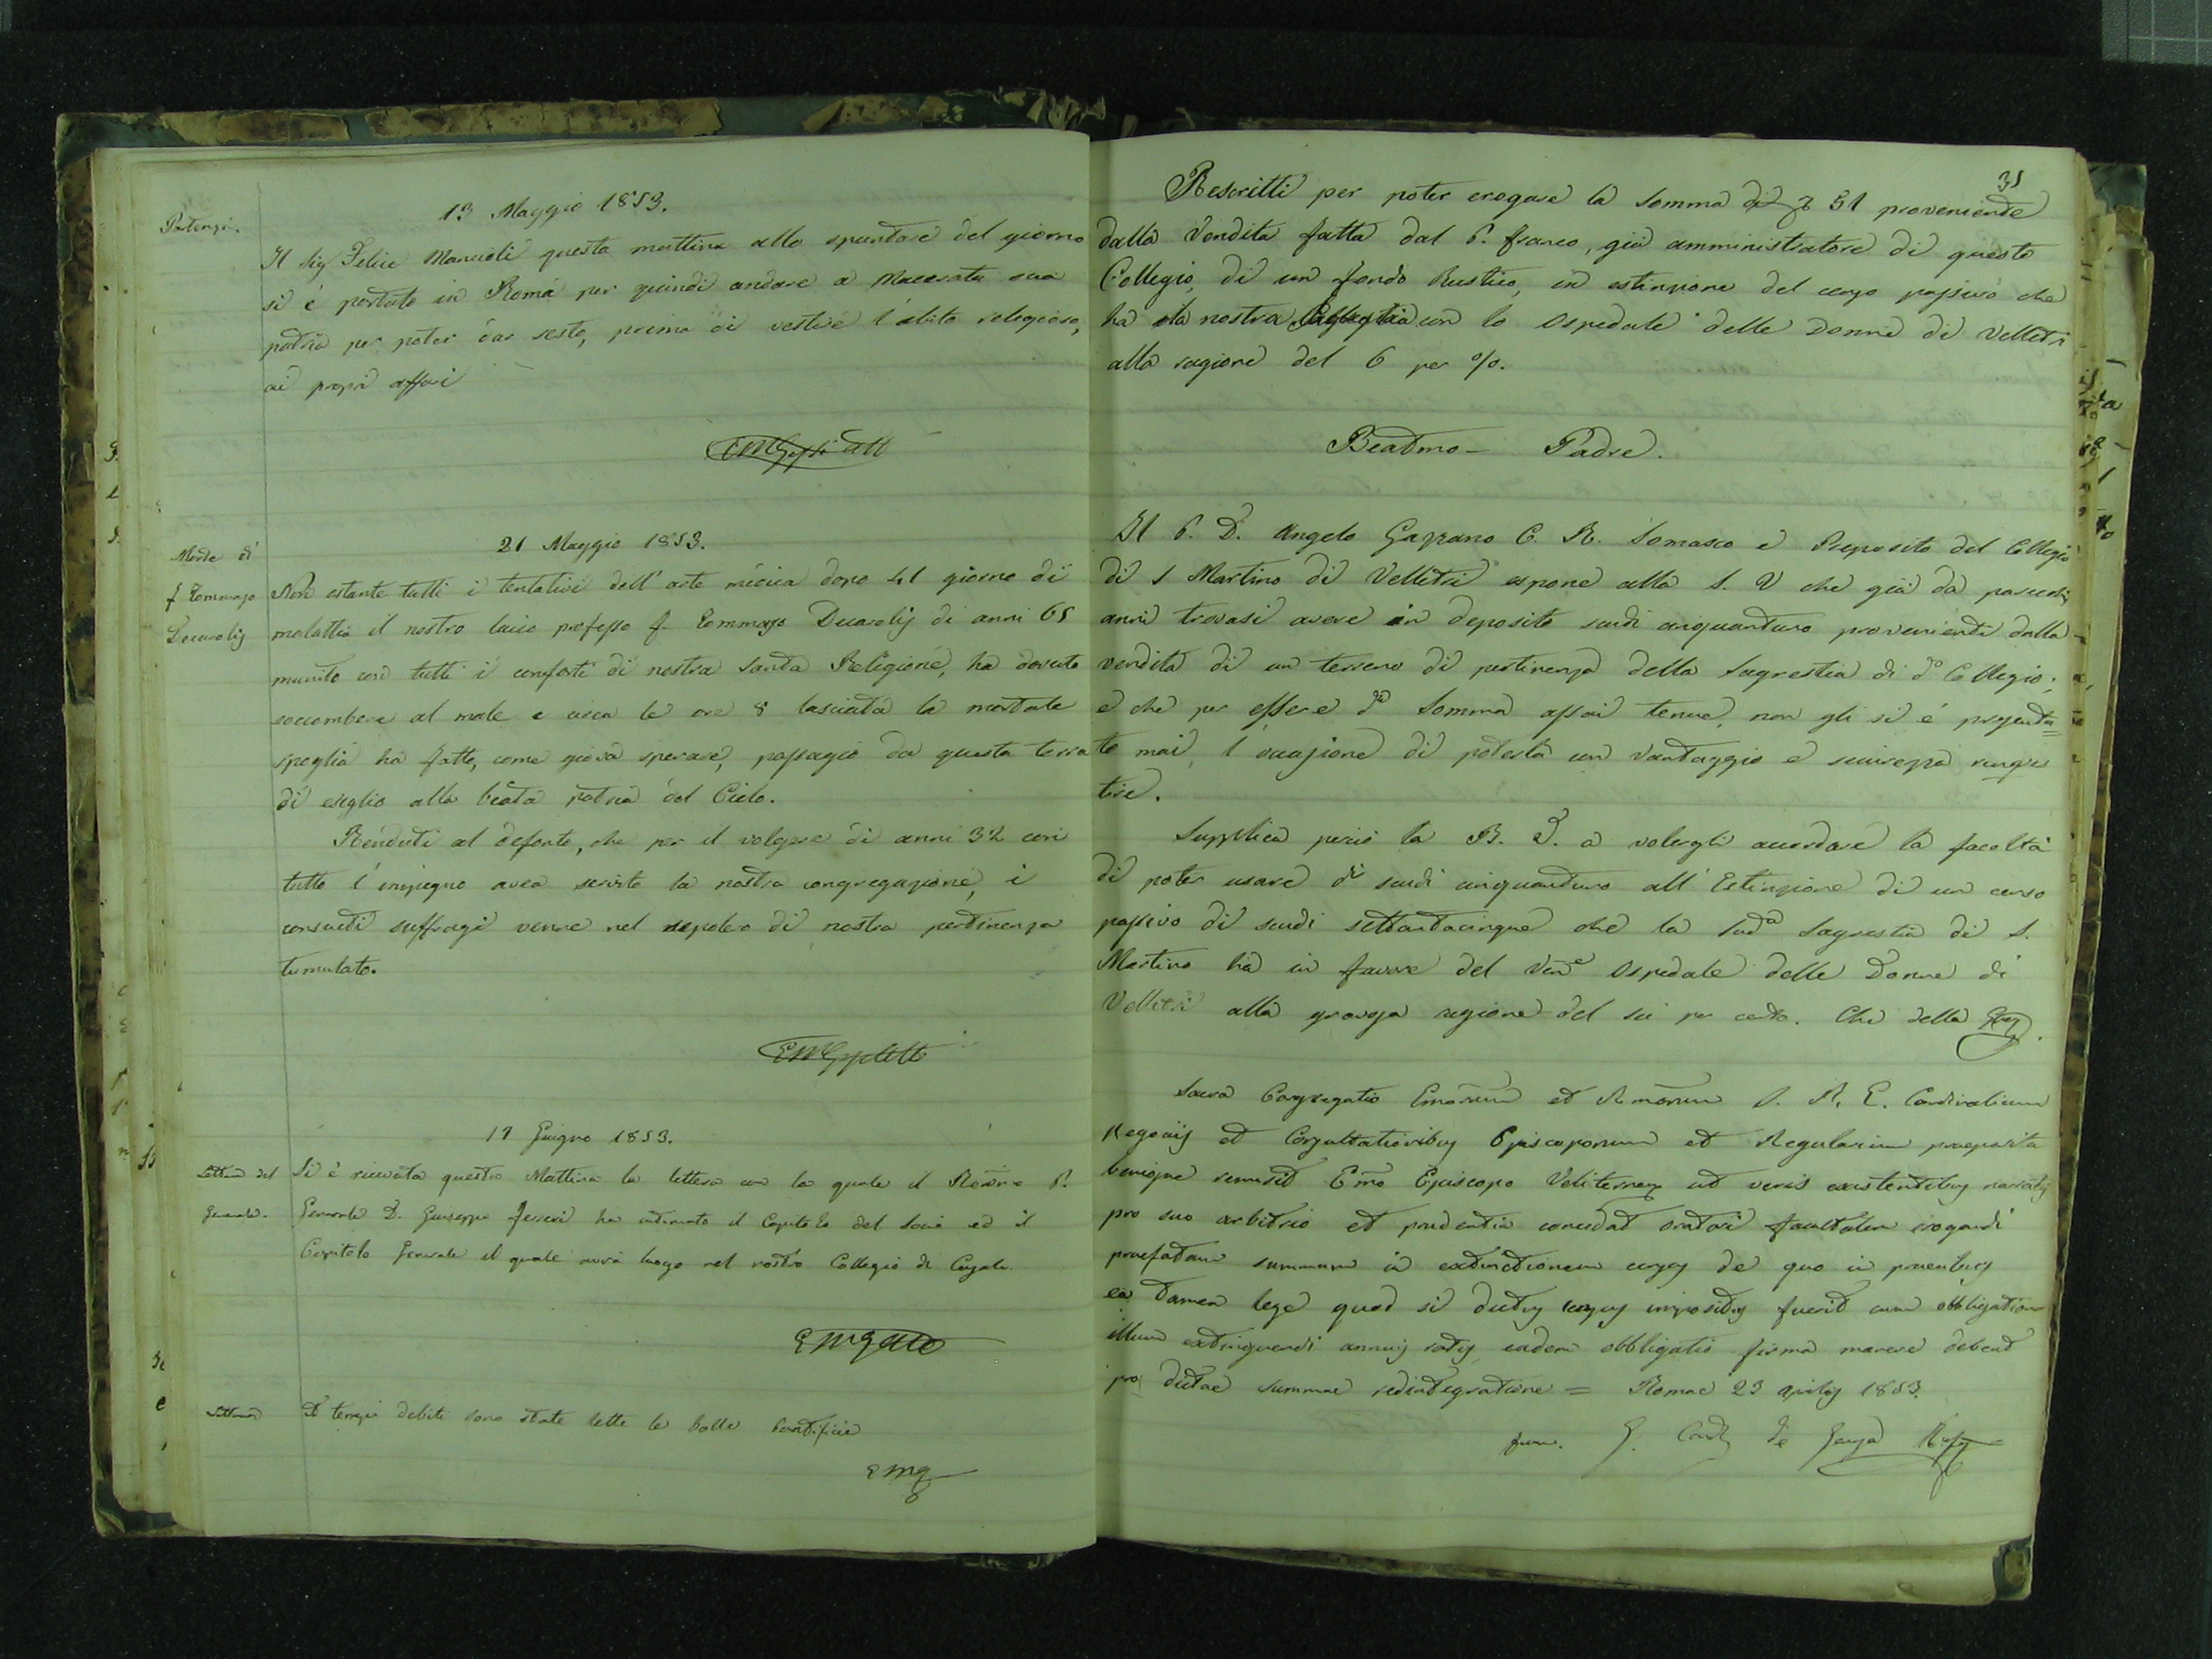 Partenza.
13 Maggio 1853.
Il Sig Felice Mancioli questa mattina allo spuntare del giorno
si è portato in Roma per quindi andare a Macerata sua
patria per poter dar sesto, prima di vestire l'abito religioso,
ai propri affari
21 Maggio 1853.
Morte di
f Tommaso
Decarolis
Non ostante tutti i tentativi dell'arte medica dopo 41 giorno di
malattia il nostro laico professo f. Tommaso Decarolis di anni 65
munito con tutti i conforti di nostra Santa Religione, ha dovuto
soccombere al male e circa le ore 8 lasciata la mortale
spoglia ha fatto, come giova sperare, passagio da questa terra
di esiglio alla beata patria del Cielo.
Renduti al defonto, che per il volgere di anni 32 con
tutto l'impegno avea servito la nostra congregazione, i
consueti suffragi venne nel sepolcro di nostra pertinenza
tumulato.
17 Giugno 1853.
Lettera del
Generale.
Si è ricevuta questa Mattina la lettera con la quale il Revmo P.
Generale D. Giuseppe Ferreri ha intimato il Capitolo del Socio ed il
Capitolo Generale il quale avrà luogo nel nostro Collegio di Casale
A tempi debiti sono state lette le bolle Pontificie
EMG
35
Rescritti per poter erogare la Somma di 51 proveniente
dalla Vendita fatta dal P. Franco, già amministratore di questo
Collegio, di un fondo Rustico, in estinzione del censo passivo che
ha la nostra con lo Ospedale delle Donne di Velletri
alla ragione del 6 per %.
Beatmo Padre.
Il P. D. Angelo Gazzano C. R. Somasco e Preposito del Collegio
di S Martino di Velletri espone alla S. V che già da parecchi
anni trovasi avere in deposito scudi cinquantuno provenienti dalla
vendita di un terreno di pertinenza della Sagrestia di do Collegio;
e che per essere da Somma assai tenue, non gli si è presenta=
to mai l'occasione di poterla con vantaggio e sicurezza rinve
tire.
Supplica perciò la B. V. a volergli accordare la facoltà
di poter usare di scudi cinquantuno all'Estinzione di un censo
passivo di scudi settantacinque che la suda Sagrestia di S.
Martino ha in favore del Vene Ospedale delle Donne di
Velletri alla gravosa ragione del sei per cento. Che della
Sacra Congregatio Emorum et Rmorum S. R. E. Cardinalium
Negociis et Consultationibus Episcoporum et Regularium praeposita
benigne remisit Emo Episcopo Veliterno ut veris existentibus narratis
pro suo arbitrio et prudentia concedat oratori facultatem erogandi
praefatam summam in extinctionem census de quo in precibus
ea tamen lege quod si dictus census impositus fuerit cum obbligatione
illum extinguendi annuis ratis eadem obbligatio firma manere debeat
pro dictae summae redintegratione = Romae 23 aprilis 1853.
G. Card